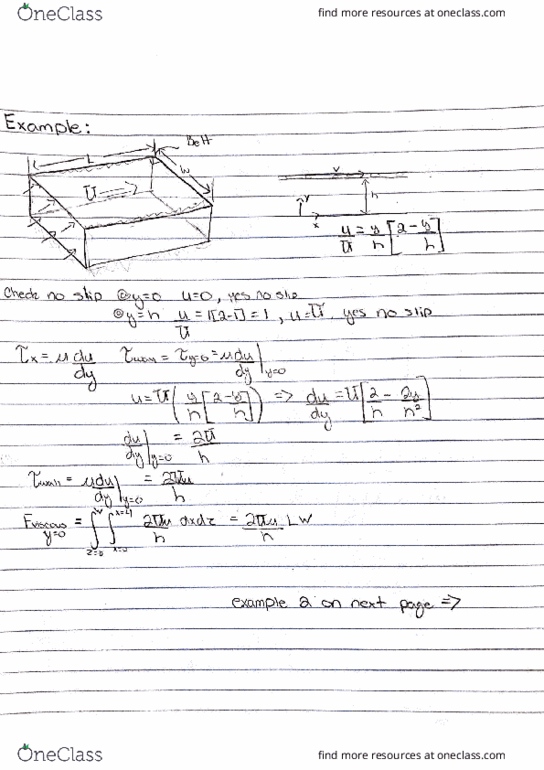 OneClass
find more resources at oneclass.com
Example:
Belt
L
W
U
v
h
y
x
u/U = y/h [2 - y/h]
Check no slip @y=0 u=0, yes no slip
@y=h u/U = 1[2-1] = 1, u=U, yes no slip
τx = μ du/dy τwall = τy=0 = μ du/dy |y=0
u = U( y/h [2 - y/h] ) => du/dy = U[ 2/h - 2y/h² ]
du/dy |y=0 = 2U/h
τwall = μ du/dy |y=0 = 2Uμ/h
Fviscous y=0 = ∫z=0^w ∫x=0^x=L 2Uμ/h dxdz = 2Uμ/h LW
example 2 on next page =>
OneClass
find more resources at oneclass.com